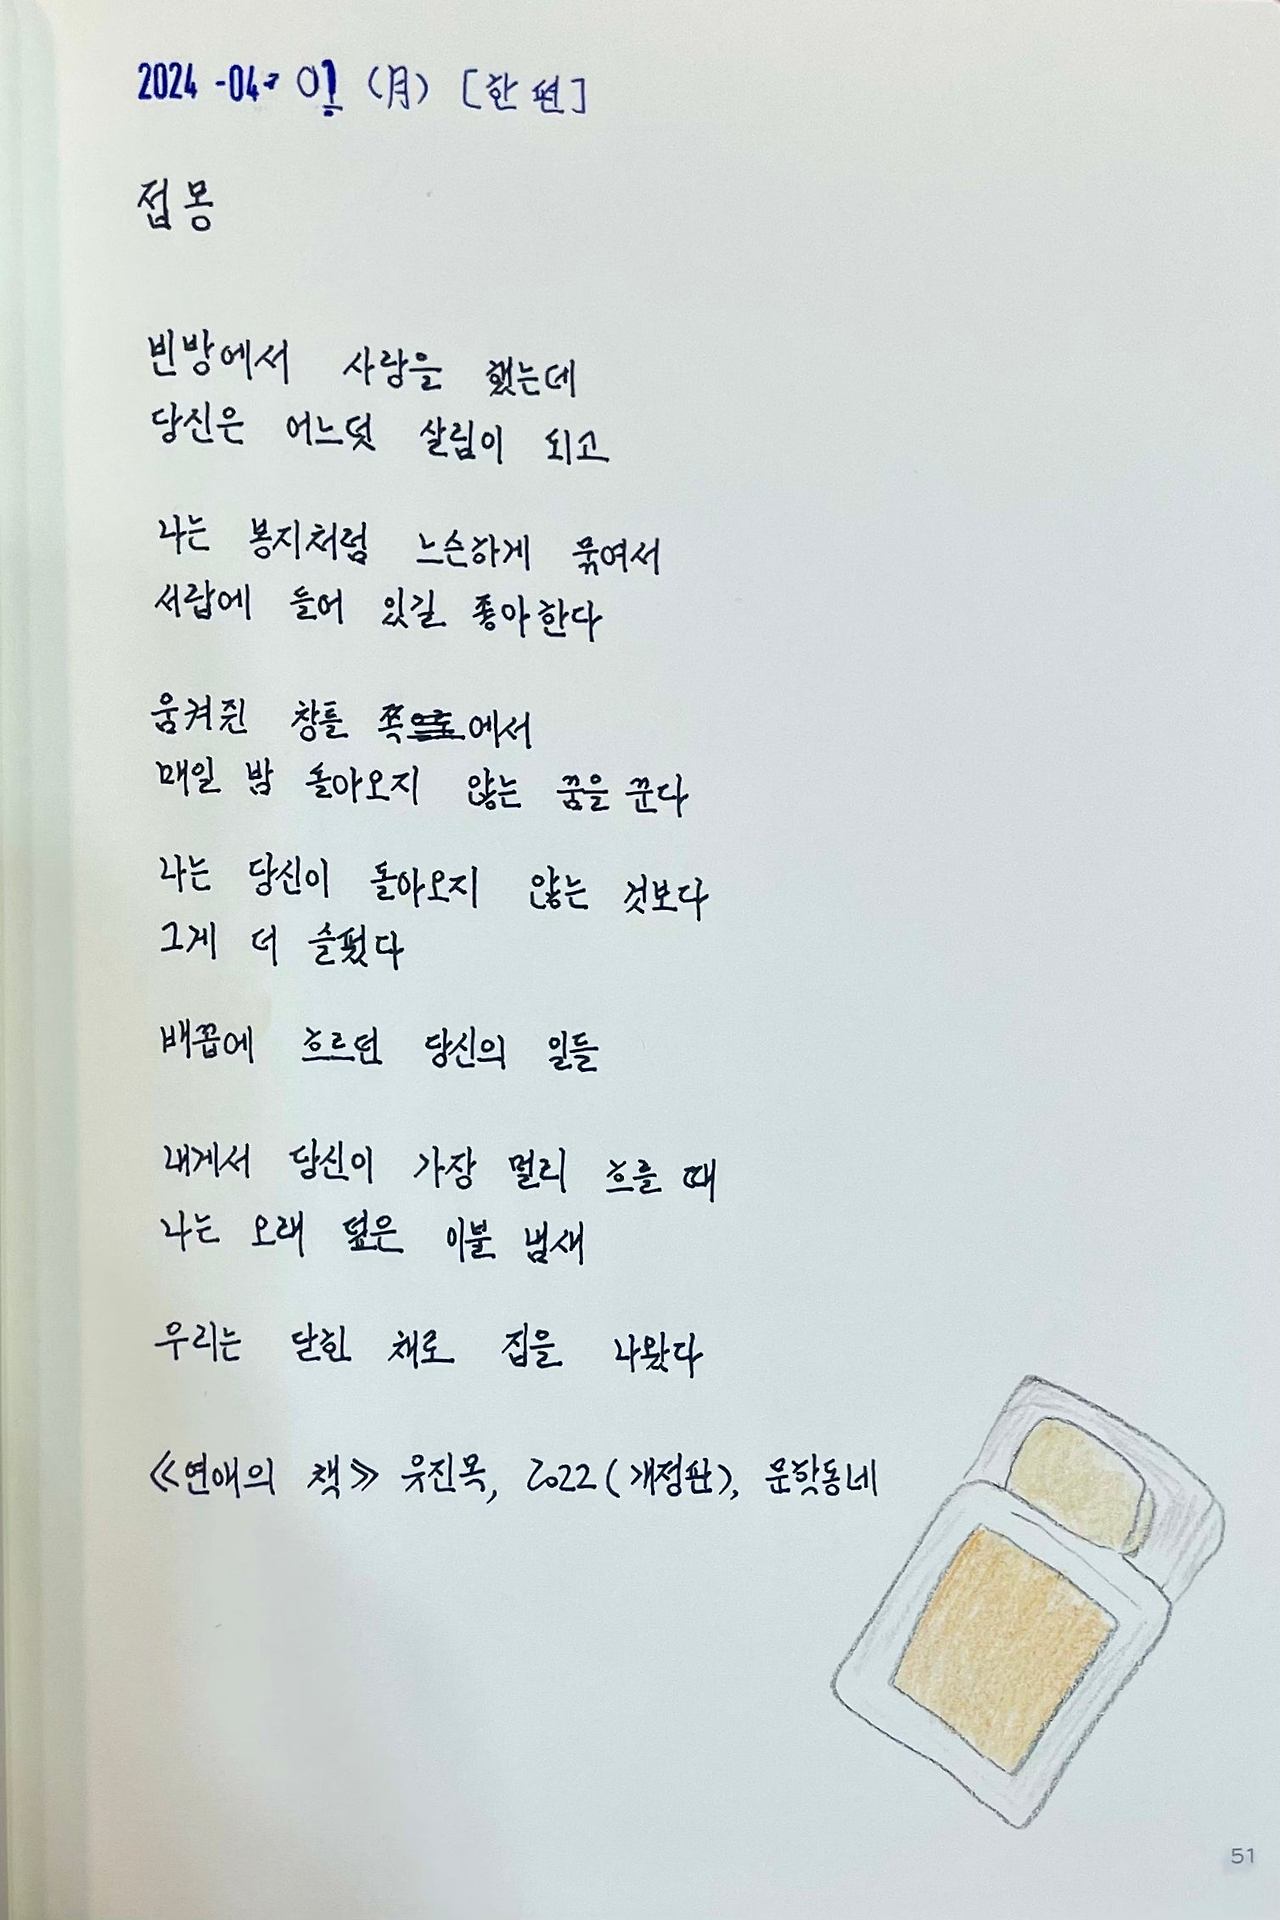 2024-04-01 (月) [한 편]
접몽
빈방에서 사랑을 했는데
당신은 어느덧 살림이 되고
나는 봉지처럼 느슨하게 묶여서
서랍에 들어 있길 좋아한다
움켜쥔 창틀 쪽에서
매일 밤 돌아오지 않는 꿈을 꾼다
나는 당신이 돌아오지 않는 것보다
그게 더 슬펐다
배꼽에 흐르던 당신의 일들
내게서 당신이 가장 멀리 흐를 때
나는 오래 덮은 이불 냄새
우리는 닫힌 채로 집을 나왔다
《연애의 책》 유진목, 2022(개정판), 문학동네
51